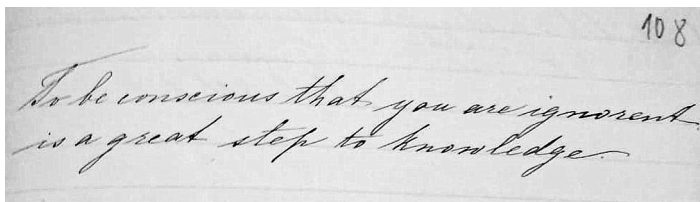 108
To be conscious that you are ignorent
is a great step to knowledge.